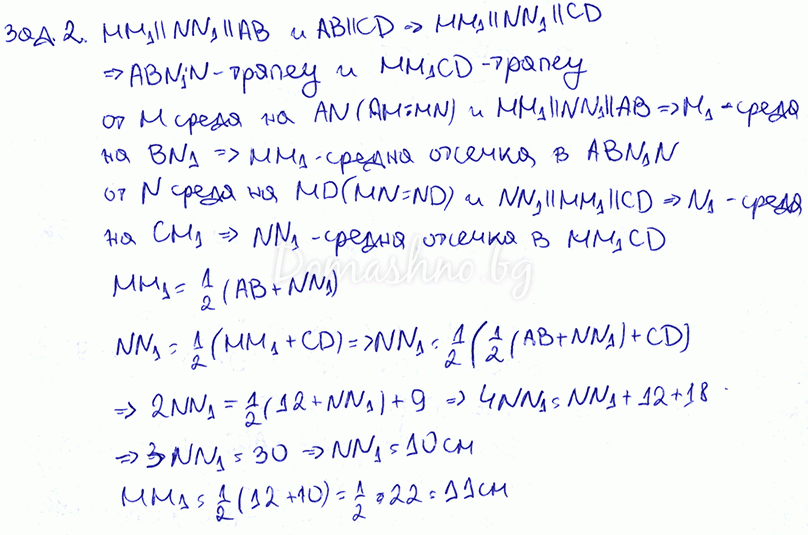 Зад. 2. MM₁||NN₁||AB и AB||CD => MM₁||NN₁||CD
=> ABN₁N-трапец и MM₁CD-трапец
от M среда на AN (AM=MN) и MM₁||NN₁||AB => M₁-среда
на BN₁ => MM₁-средна отсечка в ABN₁N
от N среда на MD (MN=ND) и NN₁||MM₁||CD => N₁-среда
на CM₁ => NN₁-средна отсечка в MM₁CD
Domashno.bg
MM₁ = 1/2 (AB+NN₁)
NN₁ = 1/2 (MM₁+CD) => NN₁ = 1/2 (1/2 (AB+NN₁)+CD)
=> 2NN₁ = 1/2 (12+NN₁)+9 => 4NN₁ = NN₁+12+18
=> 3NN₁ = 30 => NN₁ = 10 см
MM₁ = 1/2 (12+10) = 1/2 . 22 = 11 см